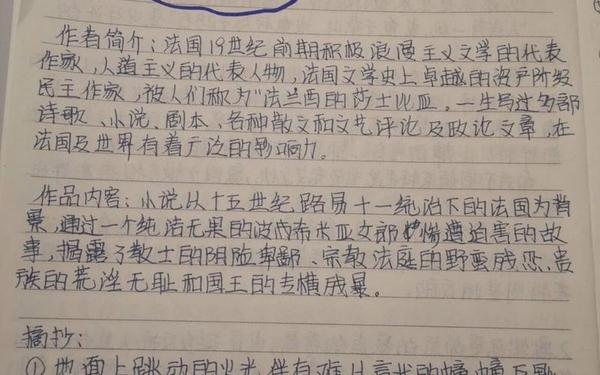 作者简介：法国19世纪前期积极浪漫主义文学的代表
作家，人道主义的代表人物，法国文学史上卓越的资产阶级
民主作家，被人们称为"法兰西的莎士比亚。一生写过多部
诗歌、小说、剧本、各种散文和文艺评论及政论文章，在
法国及世界有着广泛的影响力。
作品内容：小说以十五世纪路易十一统治下的法国为背
景，通过一个纯洁无辜的波西希米亚女郎惨遭迫害的故
事，揭露了教士的阴险卑鄙、宗教法庭的野蛮残忍、贵
族的荒淫无耻和国王的专横残暴。
摘抄：
①地面上跳动的火光伴有难以言状的幢幢